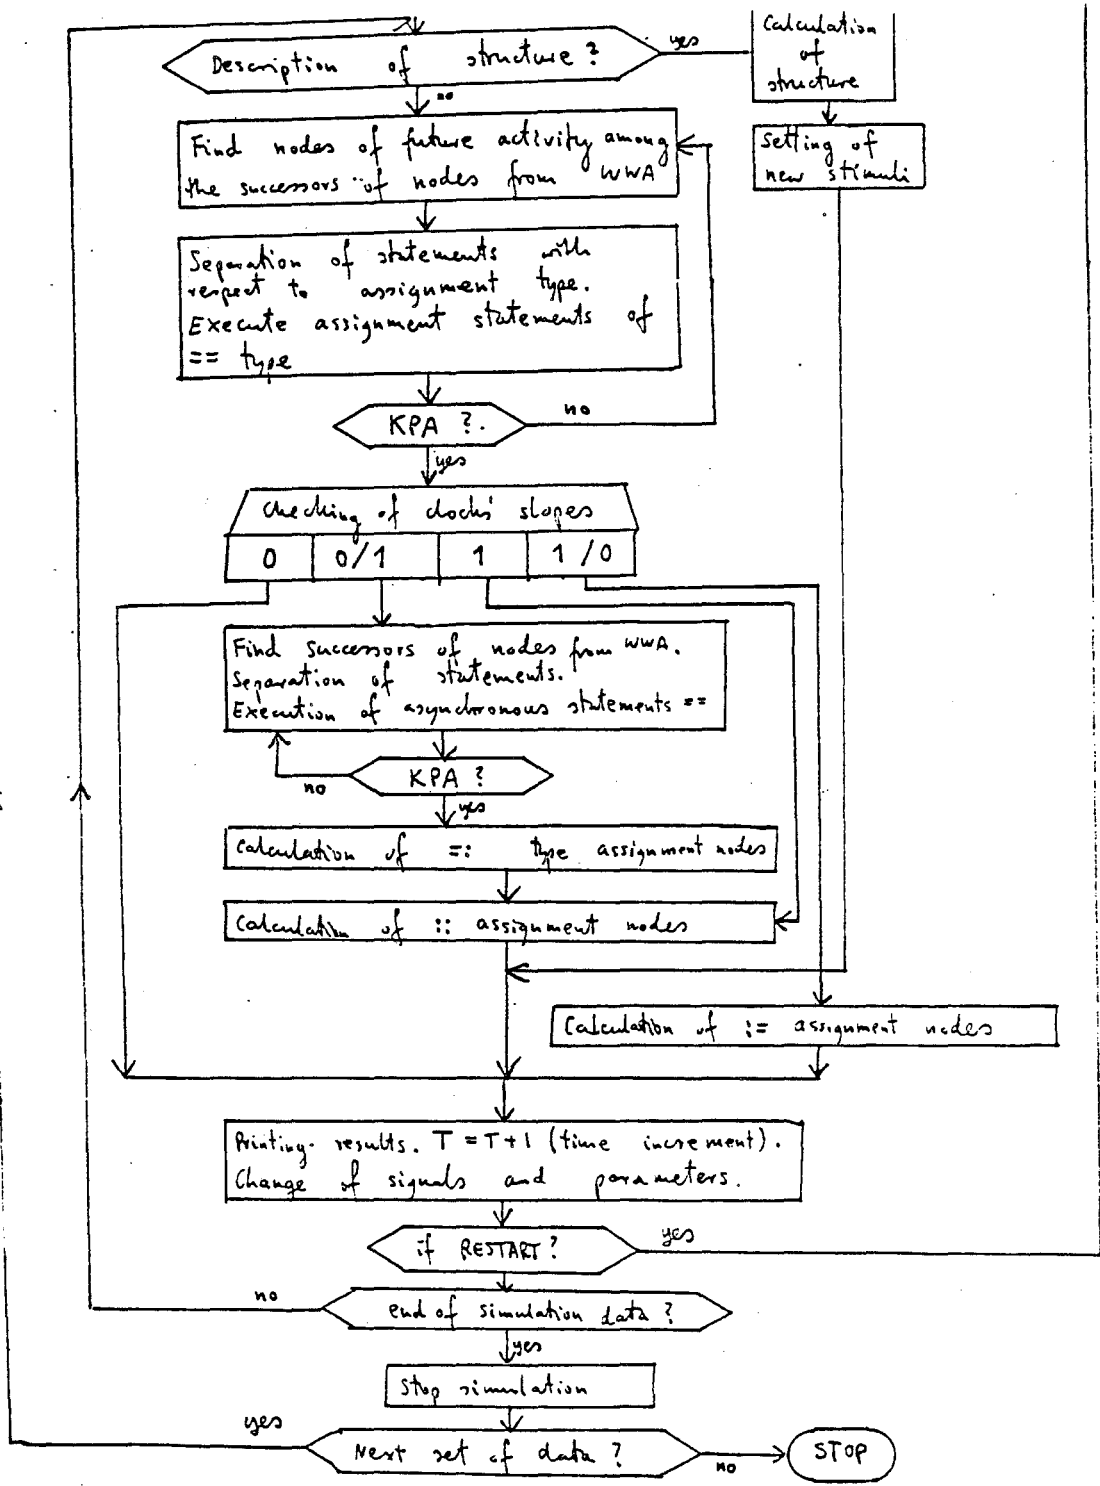 Description of structure ?
yes
Calculation
of
structure
no
Setting of
new stimuli
Find nodes of future activity among
the successors of nodes from WWA
Separation of statements with
respect to assignment type.
Execute assignment statements of
== type
KPA ?.
no
yes
Checking of clocks' slopes
0 0/1 1 1/0
Find successors of nodes from WWA.
Separation of statements.
Execution of asynchronous statements ==
KPA ?
no
yes
Calculation of =: type assignment nodes
Calculation of :: assignment nodes
Calculation of := assignment nodes
Printing results. T = T+1 (time increment).
Change of signals and parameters.
if RESTART?
yes
no
end of simulation data ?
yes
Stop simulation
yes
Next set of data ?
no
STOP